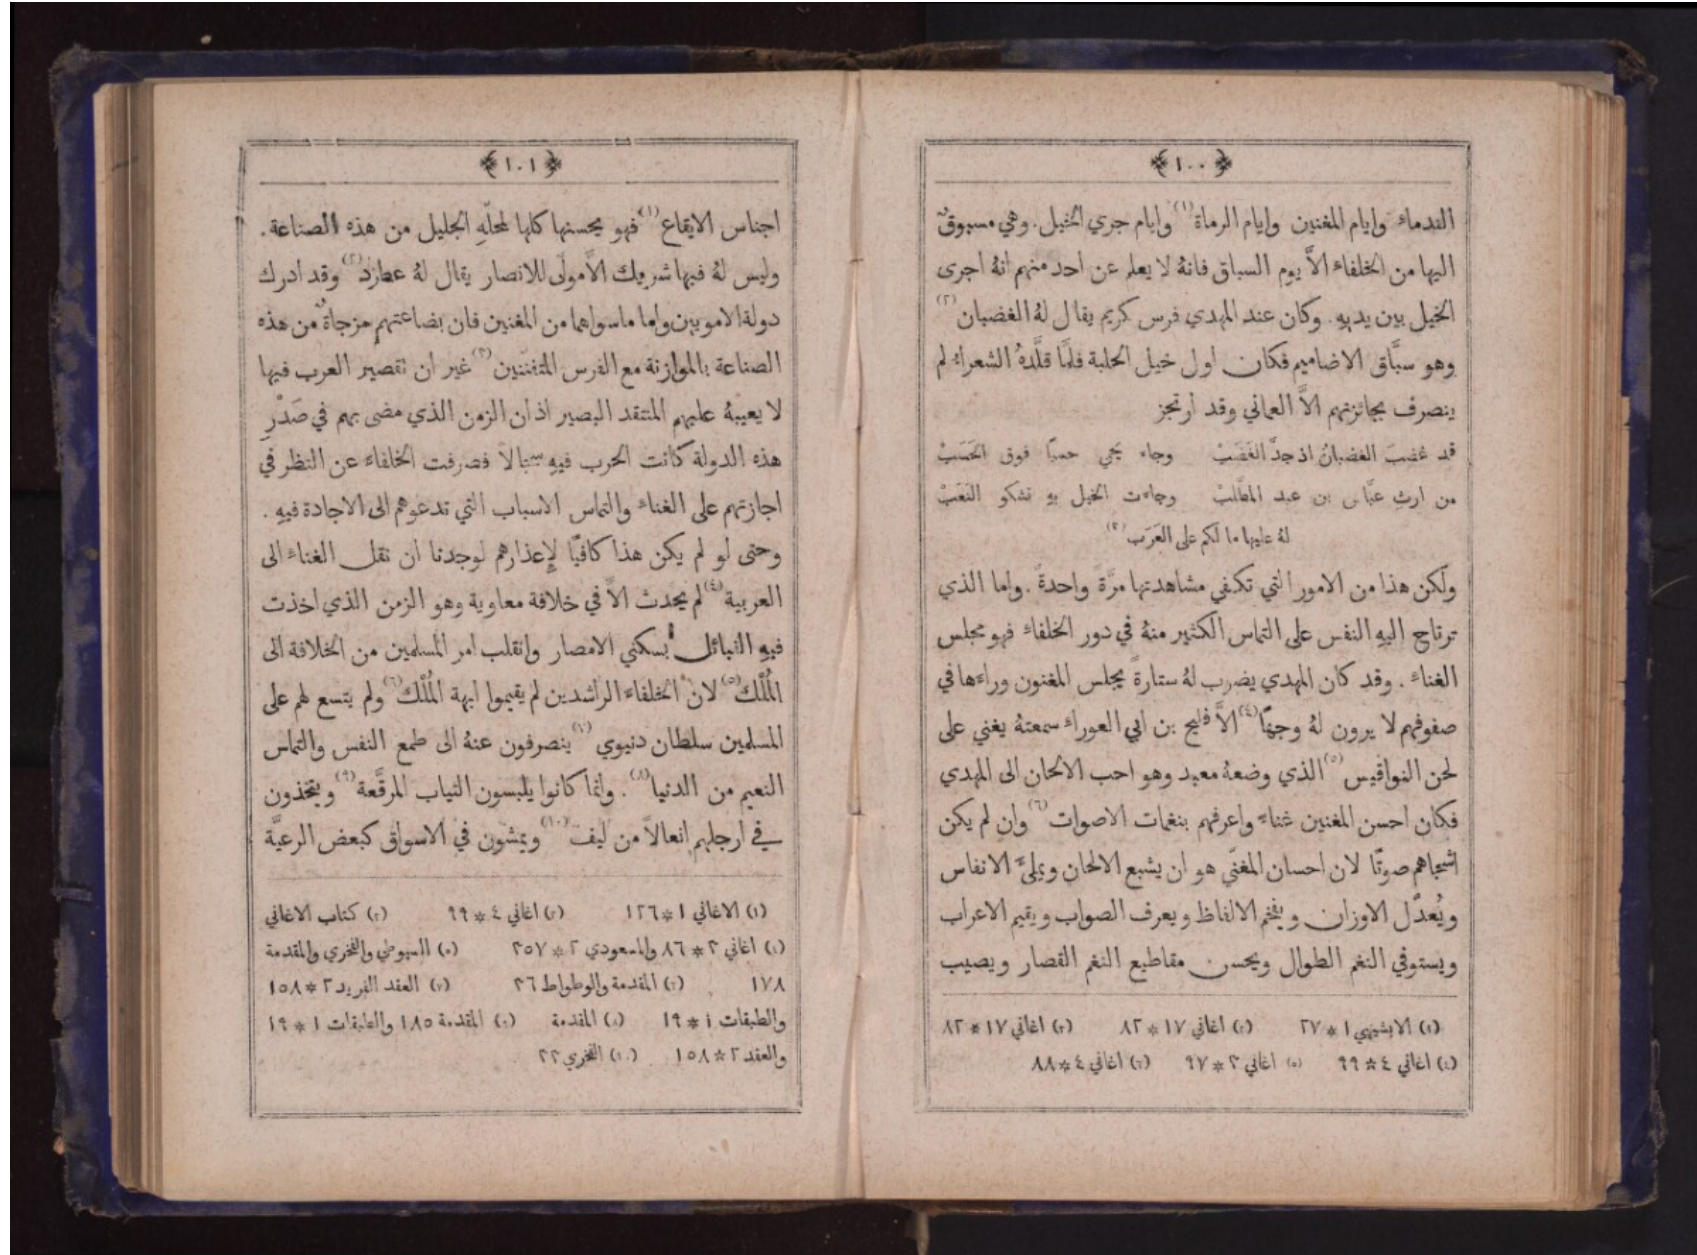 ﴿١٠٠﴾
القدماء وايام المغنين وايام الرماة(١) وايام جري الخيل. وهي مسبوقٌ
اليها من الخلفاء الاَّ يوم السباق فانهُ لا يعلم عن احد منهم انهُ اجرى
الخيل بين يديهِ. وكان عند المهدي فرس كريم يقال لهُ الغضبان(٢)
وهو سبَّاق الاضاميم فكان اول خيل الحلبة فلمَّا قلَّدهُ الشعراء لم
ينصرف بجائزتهم الاَّ العماني وقد ارتجز
قد غضبَ الغضبانُ اذ جدَّ الغَضَبْ وجاء يحمي حسبًا فوق الحَسَبْ
من ارثِ عبَّاس بن عبد المطَّلبْ وجاءت الخيل بهِ تشكو التَعَبْ
لهُ عليها ما لكم على العَرَب(٣)
ولكن هذا من الامور التي تكفي مشاهدتها مرَّةً واحدةً. واما الذي
ترتاح اليهِ النفس على التماس الكثير منهُ في دور الخلفاء فهو مجلس
الغناء. وقد كان المهدي يضرب لهُ ستارةً يجلس المغنون وراءها في
صفوفهم لا يرون لهُ وجهًا(٤) الاَّ فليح بن ابي العوراء سمعتهُ يغني على
لحن النواقيس(٥) الذي وضعهُ معبد وهو احب الالحان الى المهدي
فكان احسن المغنين غناءً واعرفهم بنغمات الاصوات(٦) وان لم يكن
اشجاهم صوتًا لان احسان المغنّي هو ان يشبع الالحان ويملئَ الانفاس
ويُعدّل الاوزان ويفخم الالفاظ ويعرف الصواب ويقيم الاعراب
ويستوفي النغم الطوال ويحسن مقاطيع النغم القصار ويصيب
(١) الابشيهي ١*٢٧ (٢) اغاني ١٧*٨٢ (٣) اغاني ١٧*٨٢
(٤) اغاني ٤*٩٩ (٥) اغاني ٢*٩٧ (٦) اغاني ٤*٨٨
﴿١٠١﴾
اجناس الايقاع(١) فهو يحسنها كلها لمحلّهِ الجليل من هذه الصناعة.
وليس لهُ فيها شريك الاَّ مولًى للانصار يقال لهُ عطارد(٢) وقد ادرك
دولة الامويين واما ما سواهما من المغنين فان بضاعتهم مزجاةٌ من هذه
الصناعة بالموازنة مع الفرس المتفننين(٣) غير ان تقصير العرب فيها
لا يعيبهُ عليهم المنتقد البصير اذ ان الزمن الذي مضى بهم في صَدْرِ
هذه الدولة كانت الحرب فيهِ سجالاً فصرفت الخلفاء عن النظر في
اجازتهم على الغناء والتماس الاسباب التي تدعوهم الى الاجادة فيهِ.
وحتى لو لم يكن هذا كافيًا لإعذارهم لوجدنا ان نقل الغناء الى
العربية(٤) لم يحدث الاَّ في خلافة معاوية وهو الزمن الذي اخذت
فيهِ القبائل بسكنى الامصار وانقلب امر المسلمين من الخلافة الى
المُلْك(٥) لان الخلفاء الراشدين لم يقيموا ابهة المُلْك(٦) ولم يتسع لهم على
المسلمين سلطان دنيوي(٧) ينصرفون عنهُ الى طمع النفس والتماس
النعيم من الدنيا(٨). وانما كانوا يلبسون الثياب المرقَّعة(٩) ويتخذون
في ارجلهم انعالاً من ليف(١٠) ويمشون في الاسواق كبعض الرعيَّة
(١) الاغاني ١*١٢٦ (٢) اغاني ٤*٩٩ (٣) كتاب الاغاني
(٤) اغاني ٣*٨٦ والمسعودي ٢*٢٥٧ (٥) السيوطي والفخري والمقدمة
١٧٨ (٦) المقدمة والوطواط ٢٦ (٧) العقد الفريد ٢*١٥٨
والطبقات ١*١٩ (٨) المقدمة (٩) المقدمة ١٨٥ والطبقات ١*١٩
والعقد ٢*١٥٨ (١٠) الفخري ٢٢